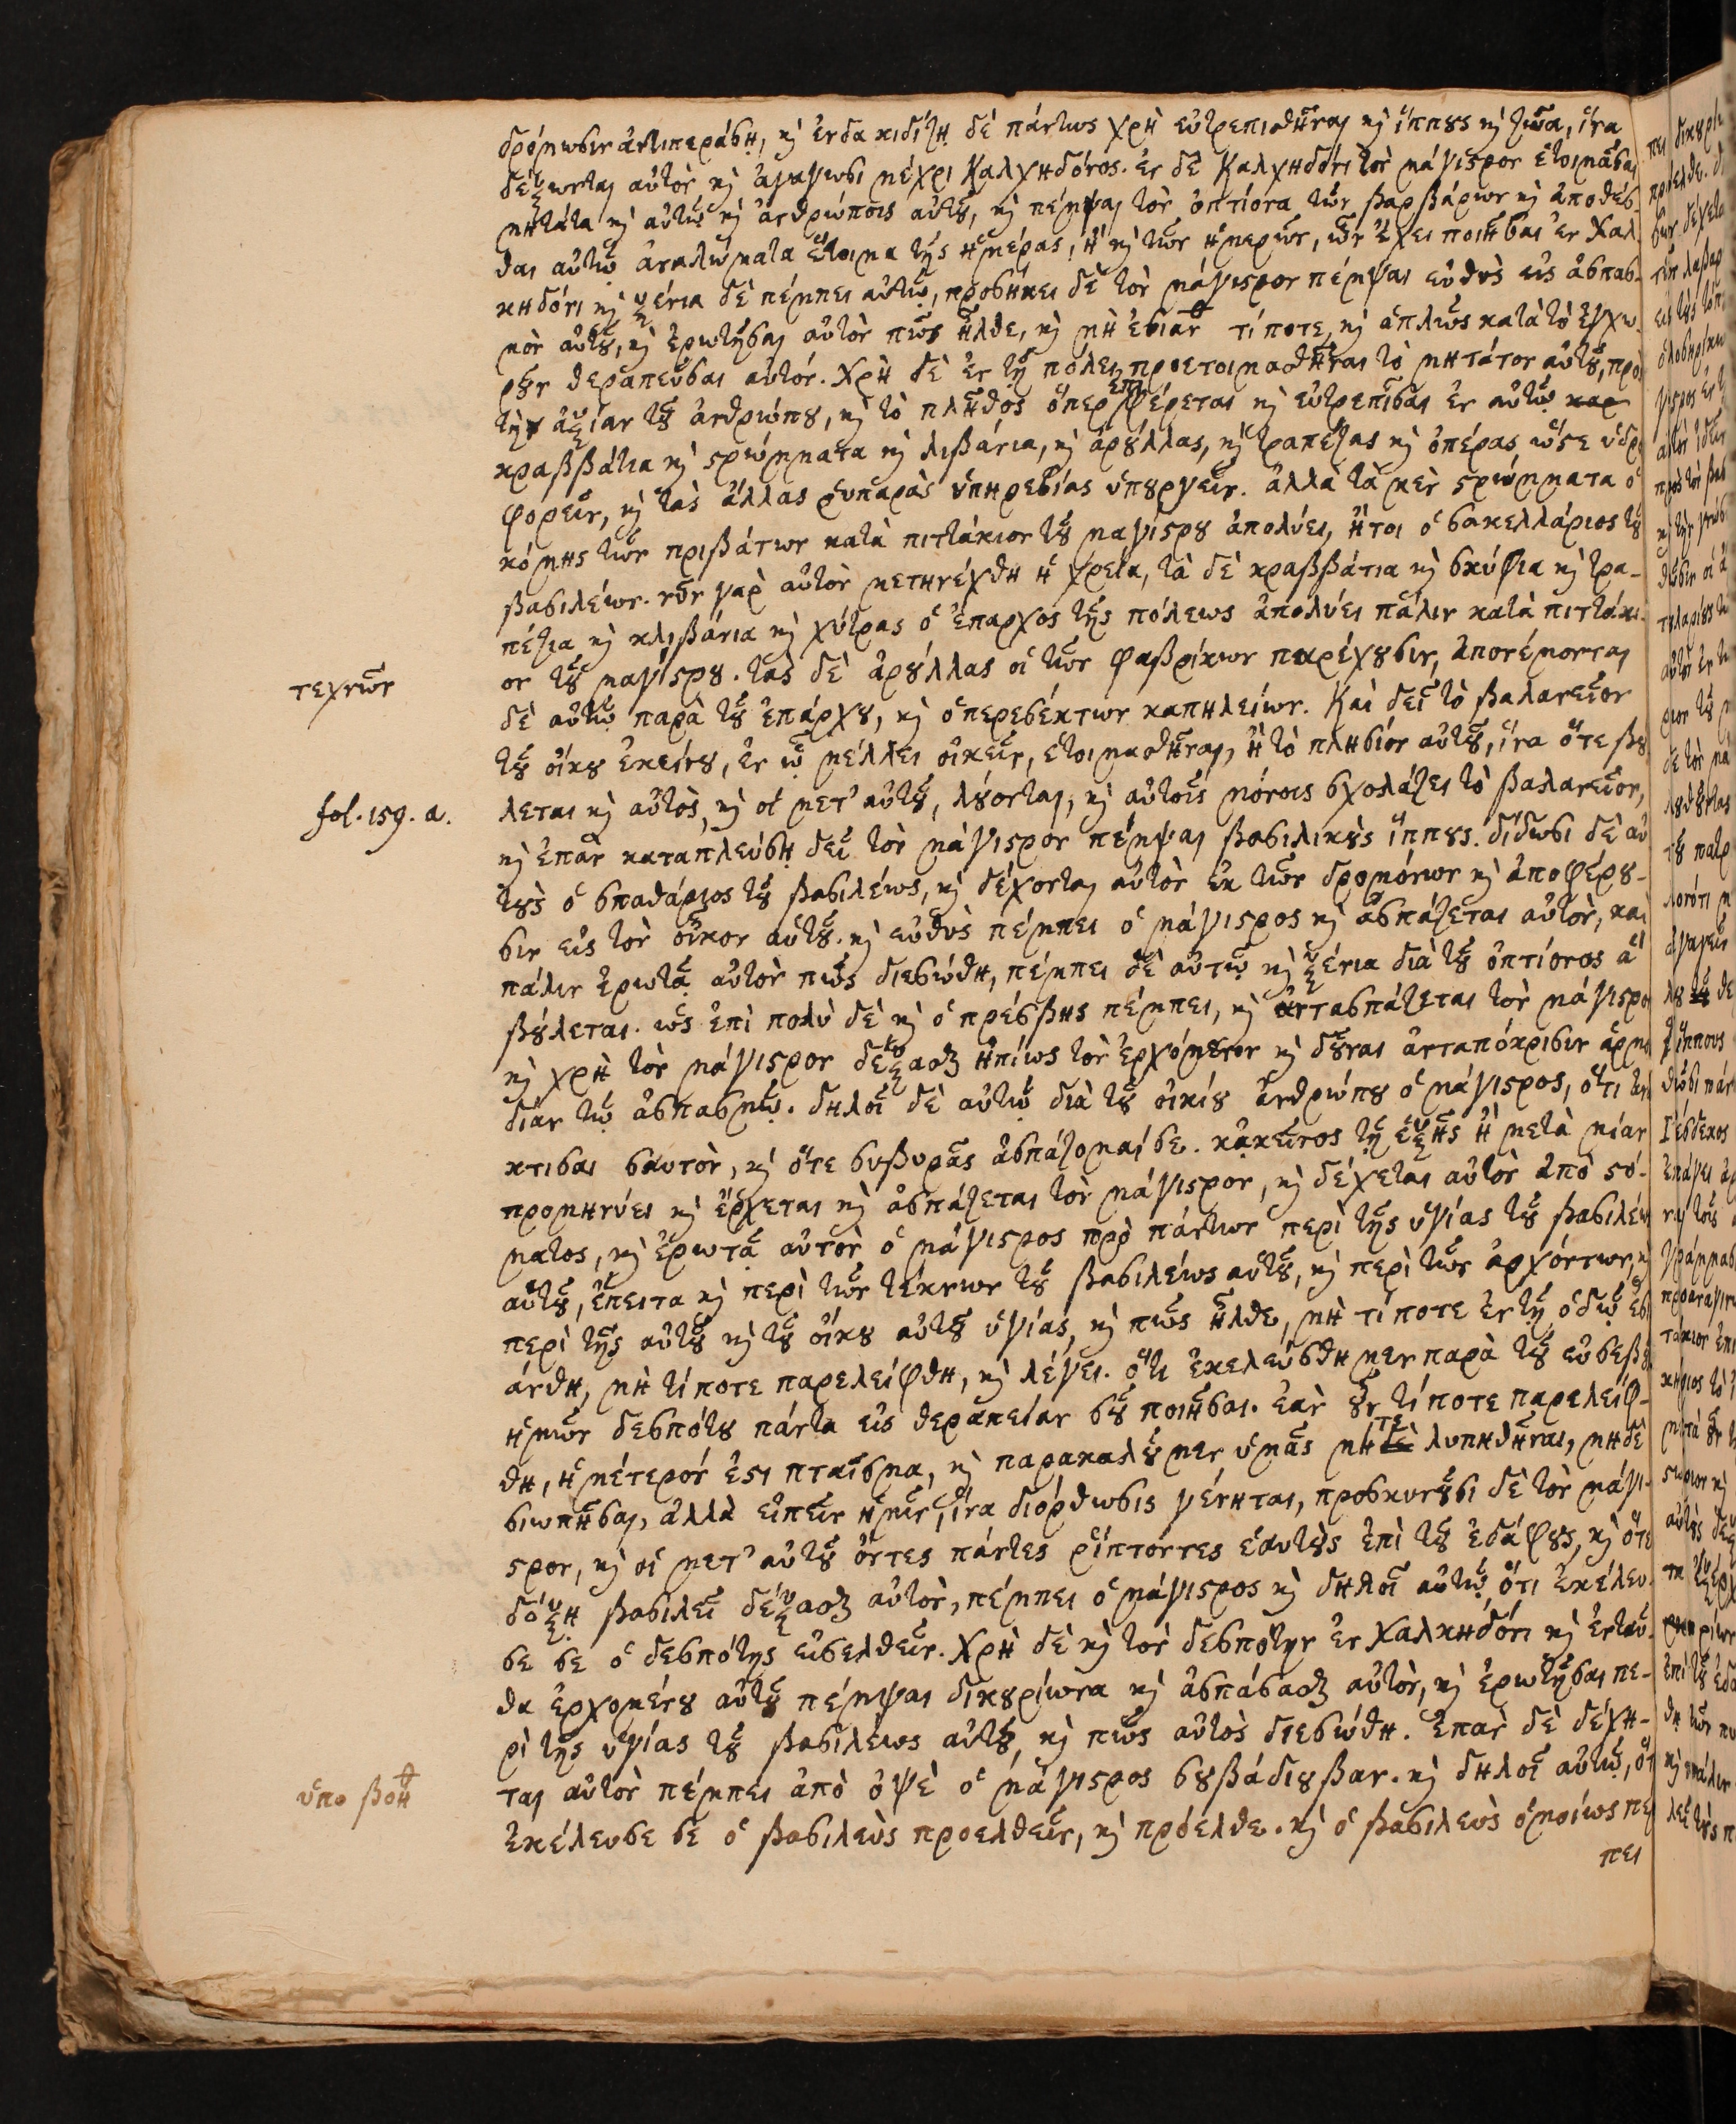 δρόμωσιν ἀντιπεράσῃ, κὶ ἐν δακιδίζῃ δὲ πάντως χρὴ εὐτρεπισθῆναι κὶ ἵππους κὶ ζῶα, ἵνα
δέξωνται αὐτὸν κὶ ἀγάγωσι μέχρι Καλχηδόνος. ἐν δὲ Καλχηδόνι τὸν μάγιστρον ἑτοιμᾶσαι
μητάτα κὶ αὐτῷ κὶ ἀνθρώποις αὐτοῦ, κὶ πέμψαι τὸν ὀπτίονα τῶν βαρβάρων κὶ ἀποθέσ-
θαι αὐτῷ ἀναλώματα ἕτοιμα τῆς ἡμέρας, ἢ κὶ τῶν ἡμερῶν, ὧν ἔχει ποιῆσαι ἐν Χαλ-
κηδόνι κὶ ξένια δὲ πέμπει αὐτῷ, προσήκει δὲ τὸν μάγιστρον πέμψαι εὐθὺς εἰς ἀσπασ-
μὸν αὐτοῦ, κὶ ἐρωτῆσαι αὐτὸν πῶς ἦλθε, κὶ μὴ ἐσιάνθ τί ποτε, κὶ ἁπλῶς κατὰ τὸ ἐγχω-
ροῦν θεραπεῦσαι αὐτόν. Χρὴ δὲ ἐν τῇ πόλει προετοιμασθῆναι τὸ μητάτον αὐτοῦ, πρὸς
τὴν ἀξίαν τοῦ ἀνθρώπου, κὶ τὸ πλῆθος ὅπερ ἐπιφέρεται κὶ εὐτρεπίσαι ἐν αὐτῷ καρ
κραββάτια κὶ στρώμματα κὶ λιβάνια, κὶ ἀρούλλας, κὶ τραπέζας κὶ ὀπέρας, ὥστε ὑδρο
φορεῖν, κὶ τὰς ἄλλας ῥυπαρὰς ὑπηρεσίας ὑπουργεῖν. ἀλλὰ τὰ μὲν στρώμματα ὁ
κόμης τῶν πριβάτων κατὰ πιττάκιον τοῦ μαγίστρου ἀπολύει, ἤτοι ὁ σακελλάριος τοῦ
βασιλέως. νῦν γὰρ αὐτὸν μετηνέχθη ἡ χρεία, τὰ δὲ κραββάτια κὶ σκύφια κὶ τρα-
πέζια κὶ κλιβάνια κὶ χύτρας ὁ ἔπαρχος τῆς πόλεως ἀπολύει πάλιν κατὰ πιττάκι-
ον τοῦ μαγίστρου. τὰς δὲ ἀρούλλας οἱ τῶν φαβρίκων παρέχουσιν, ἀπονέμονται
τεχνῶν
δὲ αὐτῷ παρὰ τοῦ ἐπάρχου, κὶ ὁπερεσέκτων καπηλείων. Καὶ δεῖ τὸ βαλανεῖον
τοῦ οἴκου ἐκείνου, ἐν ᾧ μέλλει οἰκεῖν, ἑτοιμασθῆναι, ἢ τὸ πλησίον αὐτοῦ, ἵνα ὅτε βού
λεται κὶ αὐτὸς, κὶ οἱ μετ' αὐτοῦ, λούονται, κὶ αὐτοῖς μόνοις σχολάζει τὸ βαλανεῖον,
fol. 159. a.
κὶ ἐπὰν καταπλεύσῃ δεῖ τὸν μάγιστρον πέμψαι βασιλικοὺς ἵππους. δίδωσι δὲ αὐ
τοὺς ὁ σπαθάριος τοῦ βασιλέως, κὶ δέχονται αὐτὸν ἐκ τῶν δρομόνων κὶ ἀποφέρου-
σιν εἰς τὸν οἶκον αὐτοῦ. κὶ εὐθὺς πέμπει ὁ μάγιστρος κὶ ἀσπάζεται αὐτὸν, καὶ
πάλιν ἐρωτᾷ αὐτὸν πῶς διεσώθη, πέμπει δὲ αὐτῷ κὶ ξένια διὰ τοῦ ὀπτίονος ἃ
βούλεται. ὡς ἐπὶ πολὺ δὲ κὶ ὁ πρέσβης πέμπει, κὶ ἀντασπάζεται τὸν μάγιστρο
κὶ χρὴ τὸν μάγιστρον δέξασθαι ἠπίως τὸν ἐρχόμενον κὶ δοῦναι ἀνταπόκρισιν ἁρμο
δίαν τῷ ἀσπασμῷ. δηλοῖ δὲ αὐτῷ διὰ τοῦ οἰκίου ἀνθρώπου ὁ μάγιστρος, ὅτι ἀνά
κτισαι σαυτὸν, κὶ ὅτε συβυρᾶς ἀσπάζομαί σε. κἀκεῖνος τῇ ἑξῆς ἢ μετὰ μίαν
προμηνύει κὶ ἔρχεται κὶ ἀσπάζεται τὸν μάγιστρον, κὶ δέχεται αὐτὸν ἀπὸ στό-
ματος, κὶ ἐρωτᾷ αὐτὸν ὁ μάγιστρος πρὸ πάντων περὶ τῆς ὑγίας τοῦ βασιλέως
αὐτοῦ, ἔπειτα κὶ περὶ τῶν τέκνων τοῦ βασιλέως αὐτοῦ, κὶ περὶ τῶν ἀρχόντων, κὶ
περὶ τῆς αὐτοῦ κὶ τοῦ οἴκου αὐτοῦ ὑγίας, κὶ πῶς ἦλθε, μὴ τί ποτε ἐν τῇ ὁδῷ ἐσι
άνθη, μὴ τί ποτε παρελείφθη, κὶ λέγει. ὅτι ἐκελεύσθημεν παρὰ τοῦ εὐσεβε
ἡμῶν δεσπότου πάντα εἰς θεραπείαν σοῦ ποιῆσαι. ἐὰν οὖν τί ποτε παρελείφ-
θη, ἡμέτερόν ἐστι πταῖσμα, κὶ παρακαλοῦμεν ὑμᾶς μήτε λυπηθῆναι, μηδὲ
σιωπῆσαι, ἀλλὰ εἰπεῖν ἡμῖν, ἵνα διόρθωσις γένηται, προσκυνοῦσι δὲ τὸν μάγι-
στρον, κὶ οἱ μετ' αὐτοῦ ὄντες πάντες ῥίπτοντες ἑαυτοὺς ἐπὶ τοῦ ἐδάφους, κὶ ὅτε
δόξῃ βασιλεῖ δέξασθαι αὐτὸν, πέμπει ὁ μάγιστρος κὶ δηλοῖ αὐτῷ, ὅτι ἐκέλευ-
σε σε ὁ δεσπότης εἰσελθεῖν. Χρὴ δὲ κὶ τὸν δεσπότην ἐν Χαλκηδόνι κὶ ἐνταῦ-
θα ἐρχομένου αὐτοῦ πέμψαι δικουρίωνα κὶ ἀσπάσασθαι αὐτὸν, κὶ ἐρωτῆσαι πε-
ρὶ τῆς ὑγίας τοῦ βασιλέως αὐτοῦ, κὶ πῶς αὐτὸς διεσώθη. ἐπὰν δὲ δέχη-
ται αὐτὸν πέμπει ἀπὸ ὀψὲ ὁ μάγιστρος σουβάδιουβαν. κὶ δηλοῖ αὐτῷ, ὅτ
ὑποβοηθ
ἐκέλευσε σε ὁ βασιλεὺς προελθεῖν, κὶ πρόελθε. κὶ ὁ βασιλεὺς ὁμοίως πέμ
πει